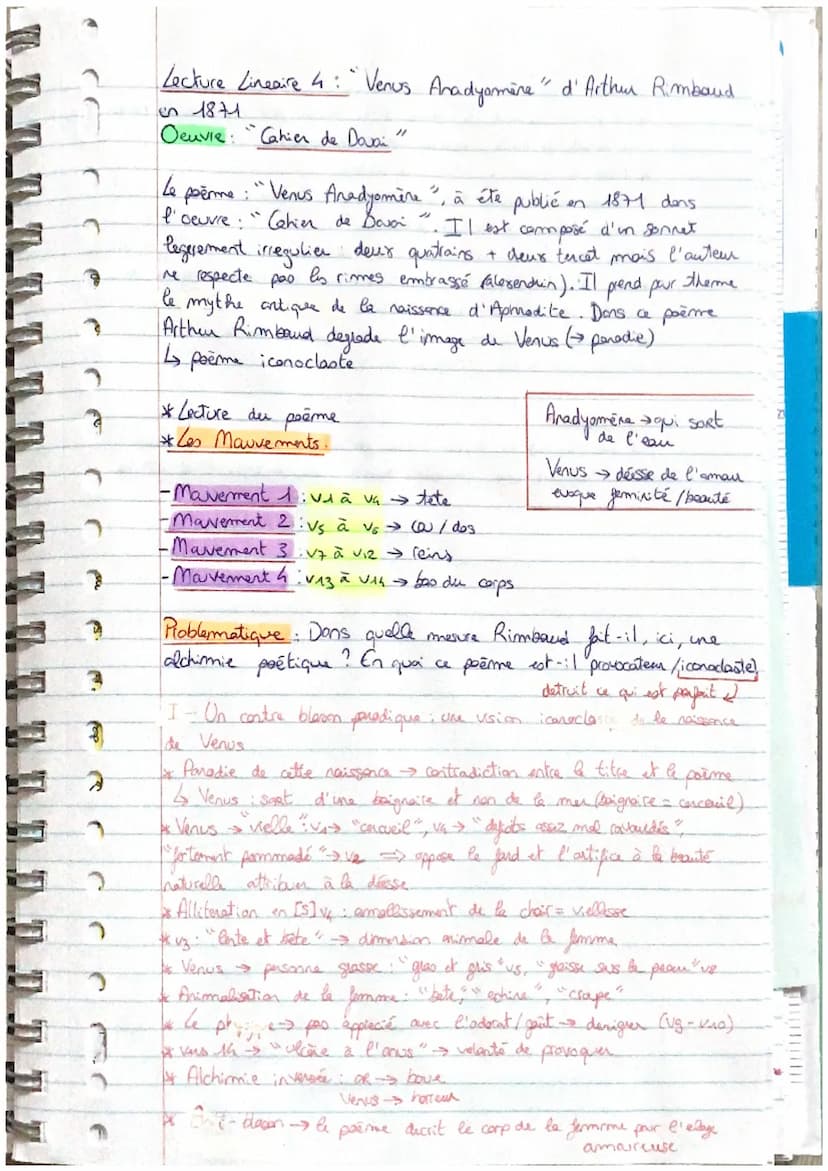 Lecture Lineaire 4 : "Venus Anadyomène" d'Arthur Rimbaud
en 1871
Oeuvre : "Cahier de Douai"
Le poëme : "Venus Anadyomène", à éte publié en 1871 dans
l'oeuvre : "Cahier de Douai". Il est composé d'un sonnet
legerement irregulier : deux quatrains + deux tercet mais l'auteur
ne respecte pas les rimmes embrassé (alexendrin). Il prend pour theme
le mythe antique de la naissance d'Aphrodite. Dans ce poëme
Arthur Rimbaud degrade l'image de Venus (→ parodie)
↳ poëme iconoclaste
* Lecture du poëme
* Les Mouvements.
Anadyomène → qui sort
de l'eau
Venus → déesse de l'amour
evoque feminité / beauté
- Mouvement 1 : v1 à v4 → tete
- Mouvement 2 : v5 à v6 → cou / dos
- Mouvement 3 : v7 à v12 → reins
- Mouvement 4 : v13 à v14 → bas du corps
Problematique : Dans quelle mesure Rimbaud fait-il, ici, une
alchimie poëtique ? En quoi ce poëme est-il provocateur / iconoclaste
detruit ce qui est parfait
I - Un contre blason parodique : une vision iconoclas de la naissance
de Venus
* Parodie de cette naissance → contradiction entre le titre et le poëme
↳ Venus : sort d'une baignoire et non de la mer (baignoire = cerceuil)
* Venus → "vielle" : v1 → "cercueil", v4 → "deficits assez mal ravaudés",
"fortement pommadé" → v2 => oppose le fard et l'artifice à la beauté
naturelle attribuer à la déesse
* Alliteration en [s] v4 : amollissement de la chair = viellesse
* v3 : "lente et bête" → dimension animale de la femme
* Venus → personne grasse : "gras et gris" v5, "graisse sous la peau" v8
* Animalisation de la femme : "bete", "echine", "croupe"
* Le → pas apprecié avec l'odorat / goût → denigrer (v9 - v10)
* vers 14 → "ulcère à l'anus" → volonté de provoquer
* Alchimie inversée : or → boue
Venus → horreur
* - blason → le poëme decrit le corp de la femme pour l'eloge
amoureuse